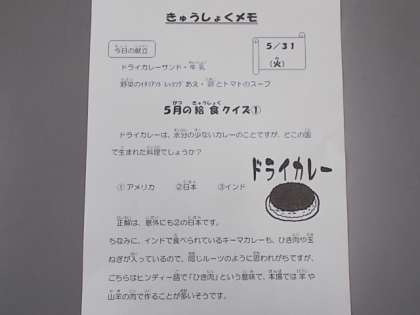 きゅうしょくメモ
今日の献立
５/３１
（火）
ドライカレーサンド・牛乳
野菜のイタリアンドレッシングあえ・卵とトマトのスープ
５月の給食クイズ①
ドライカレーは、水分の少ないカレーのことですが、どこの国
で生まれた料理でしょうか？
①アメリカ　②日本　③インド
ドライカレー
正解は、意外にも２の日本です。
ちなみに、インドで食べられているキーマカレーも、ひき肉や玉
ねぎが入っているので、同じルーツのように思われがちですが、
こちらはヒンディー語で「ひき肉」という意味で、本場では羊や
山羊の肉で作ることが多いそうです。